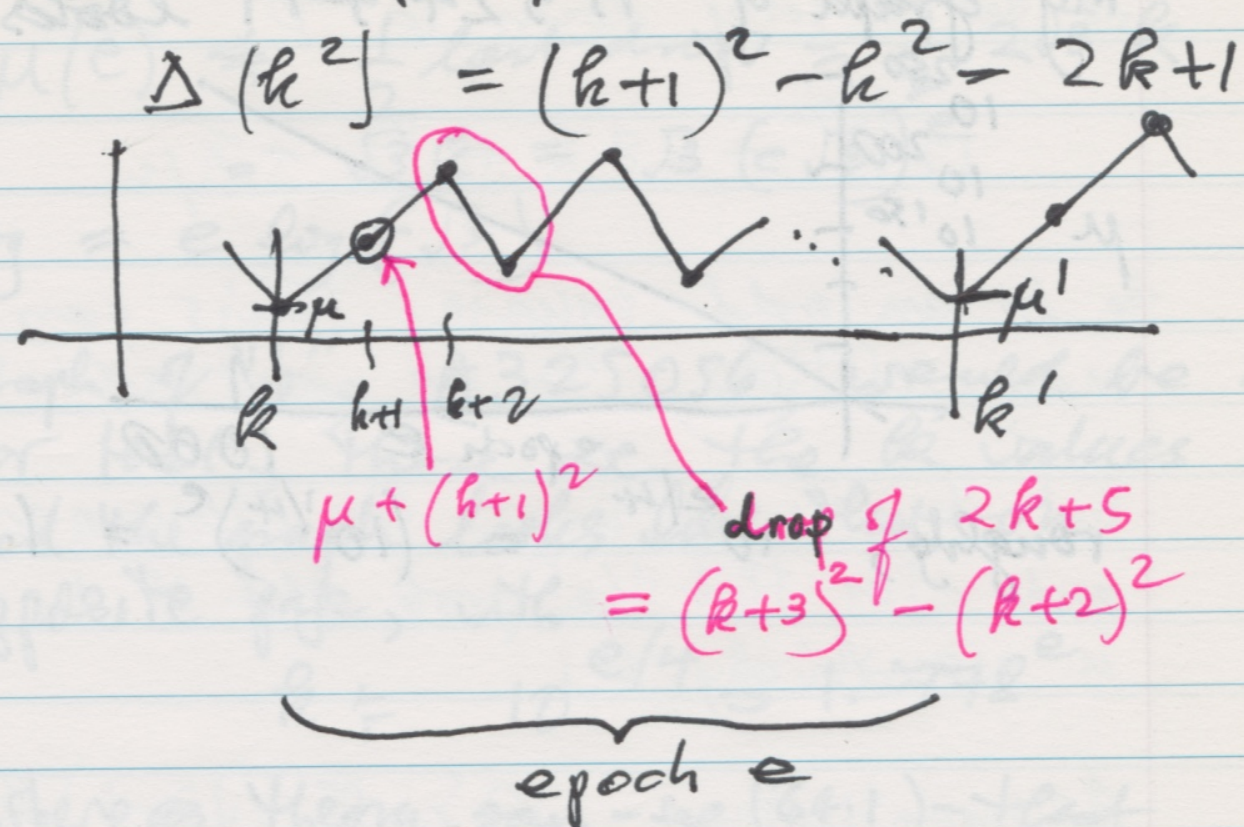 Δ (k²] = (k+1)² - k² = 2k+1
μ μ'
k k+1 k+2 k'
μ + (k+1)²
drop of 2k+5
= (k+3)² - (k+2)²
epoch e